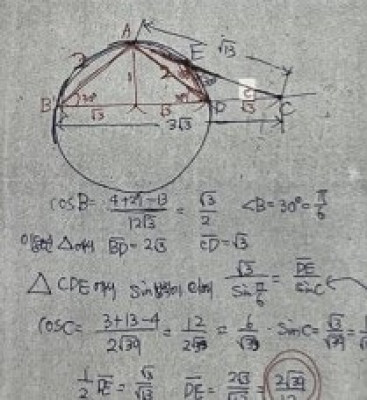 A
E
√13
2
2
1
B
30°
√3
√3
D
√3
C
3√3
cosB = (4+27-13)/(12√3) = √3/2   ∠B = 30° = π/6
BD = 2√3   CD = √3
△CDE에서   √3/(sin π/6) = DE/sinC
cosC = (3+13-4)/(2√39) = 12/(2√39) = 6/√39 · sinC = √3/√39 =
1/2 DE = √3/√13   DE = 2√3/√13 = 2√39/13